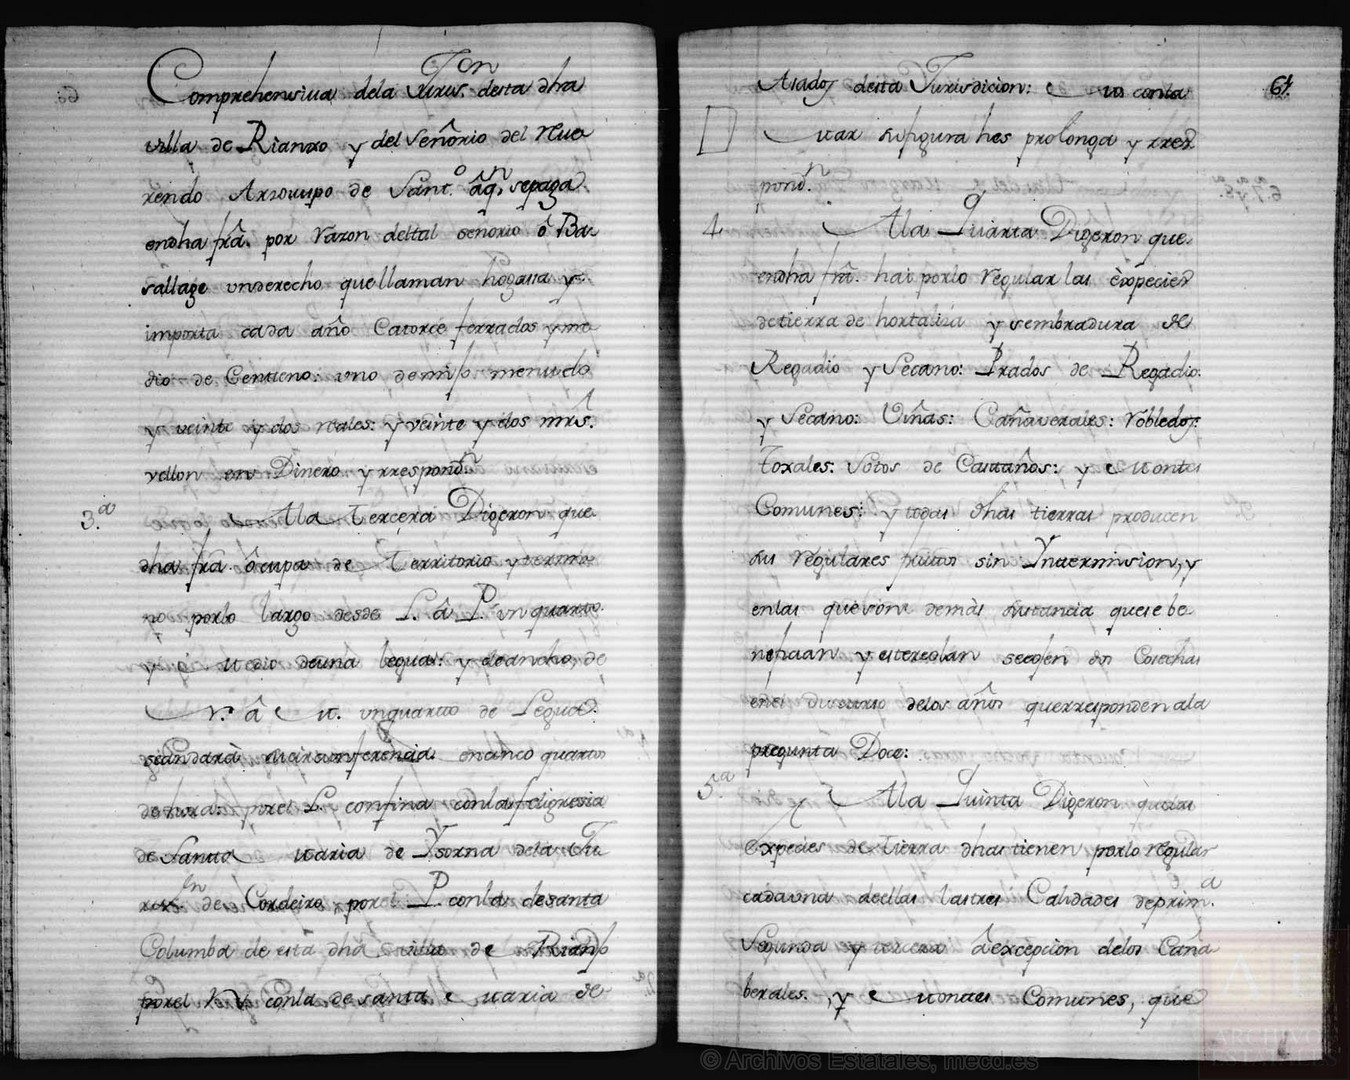 Comprehensiua dela Juris.on desta dha
villa de Rianxo y del señorio del Reue
rendo Arzouispo de Sant.o âq.n sepaga
endha frâ. por razon deltal señorio ô Ba
sallage underecho que llaman hogasa y
importa cada año Catorce ferrados y me
dio de Centeno: uno de mijo menudo
y veinte y dos reales: y veinte y dos mrs.
vellon en Dinero y rrespond.n
3.a Ala tercera Digeron que
dha frâ. ôcupa de territorio y termi
no porlo largo desde L. â P. un quarto
y medio deuna legua: y de ancho, de
N. â M. unquarto de Legua.
siandarà encircunferencia. encinco quartos
de hora: por el L. confina conla feligresia
de Santa Maria de Ysorna dela Ju
rix.on de Cordeiro por el P. conla desanta
Columba de esta dha villa de Rianjo
porel N. y conla de santa Maria de
61.
Asados desta Jurisdicion: M conla
Mar su figura hes prolonga y rres
pond.n
6. 7. y 8.
4. Ala Quarta Digeron que
endha frâ. hai porlo regular las èspecies
de tierra de hortaliza y sembradura de
Regadio y Secano: Prados de Regadio
y Secano: Viñas: Cañaverales: robledos:
toxales: Sotos de Castaños: y Montes
Comunes: y todas dhas tierras producen
sus regulares frutos sin Yntermision, y
enlas que von demàs sustancia que se be
nefician y estercolan secojen dos Cosechas
enel discurso delos años querresponden ala
pregunta Doce:
5.a Ala Quinta Digeron quelas
Expecies de Tierra dhas tienen porlo regular
cada una deellas las tres Calidades de prim.a
Segunda y tercera âexcepcion delos Caña
berales. y Montes Comunes, que
© Archivos Estatales, mecd.es